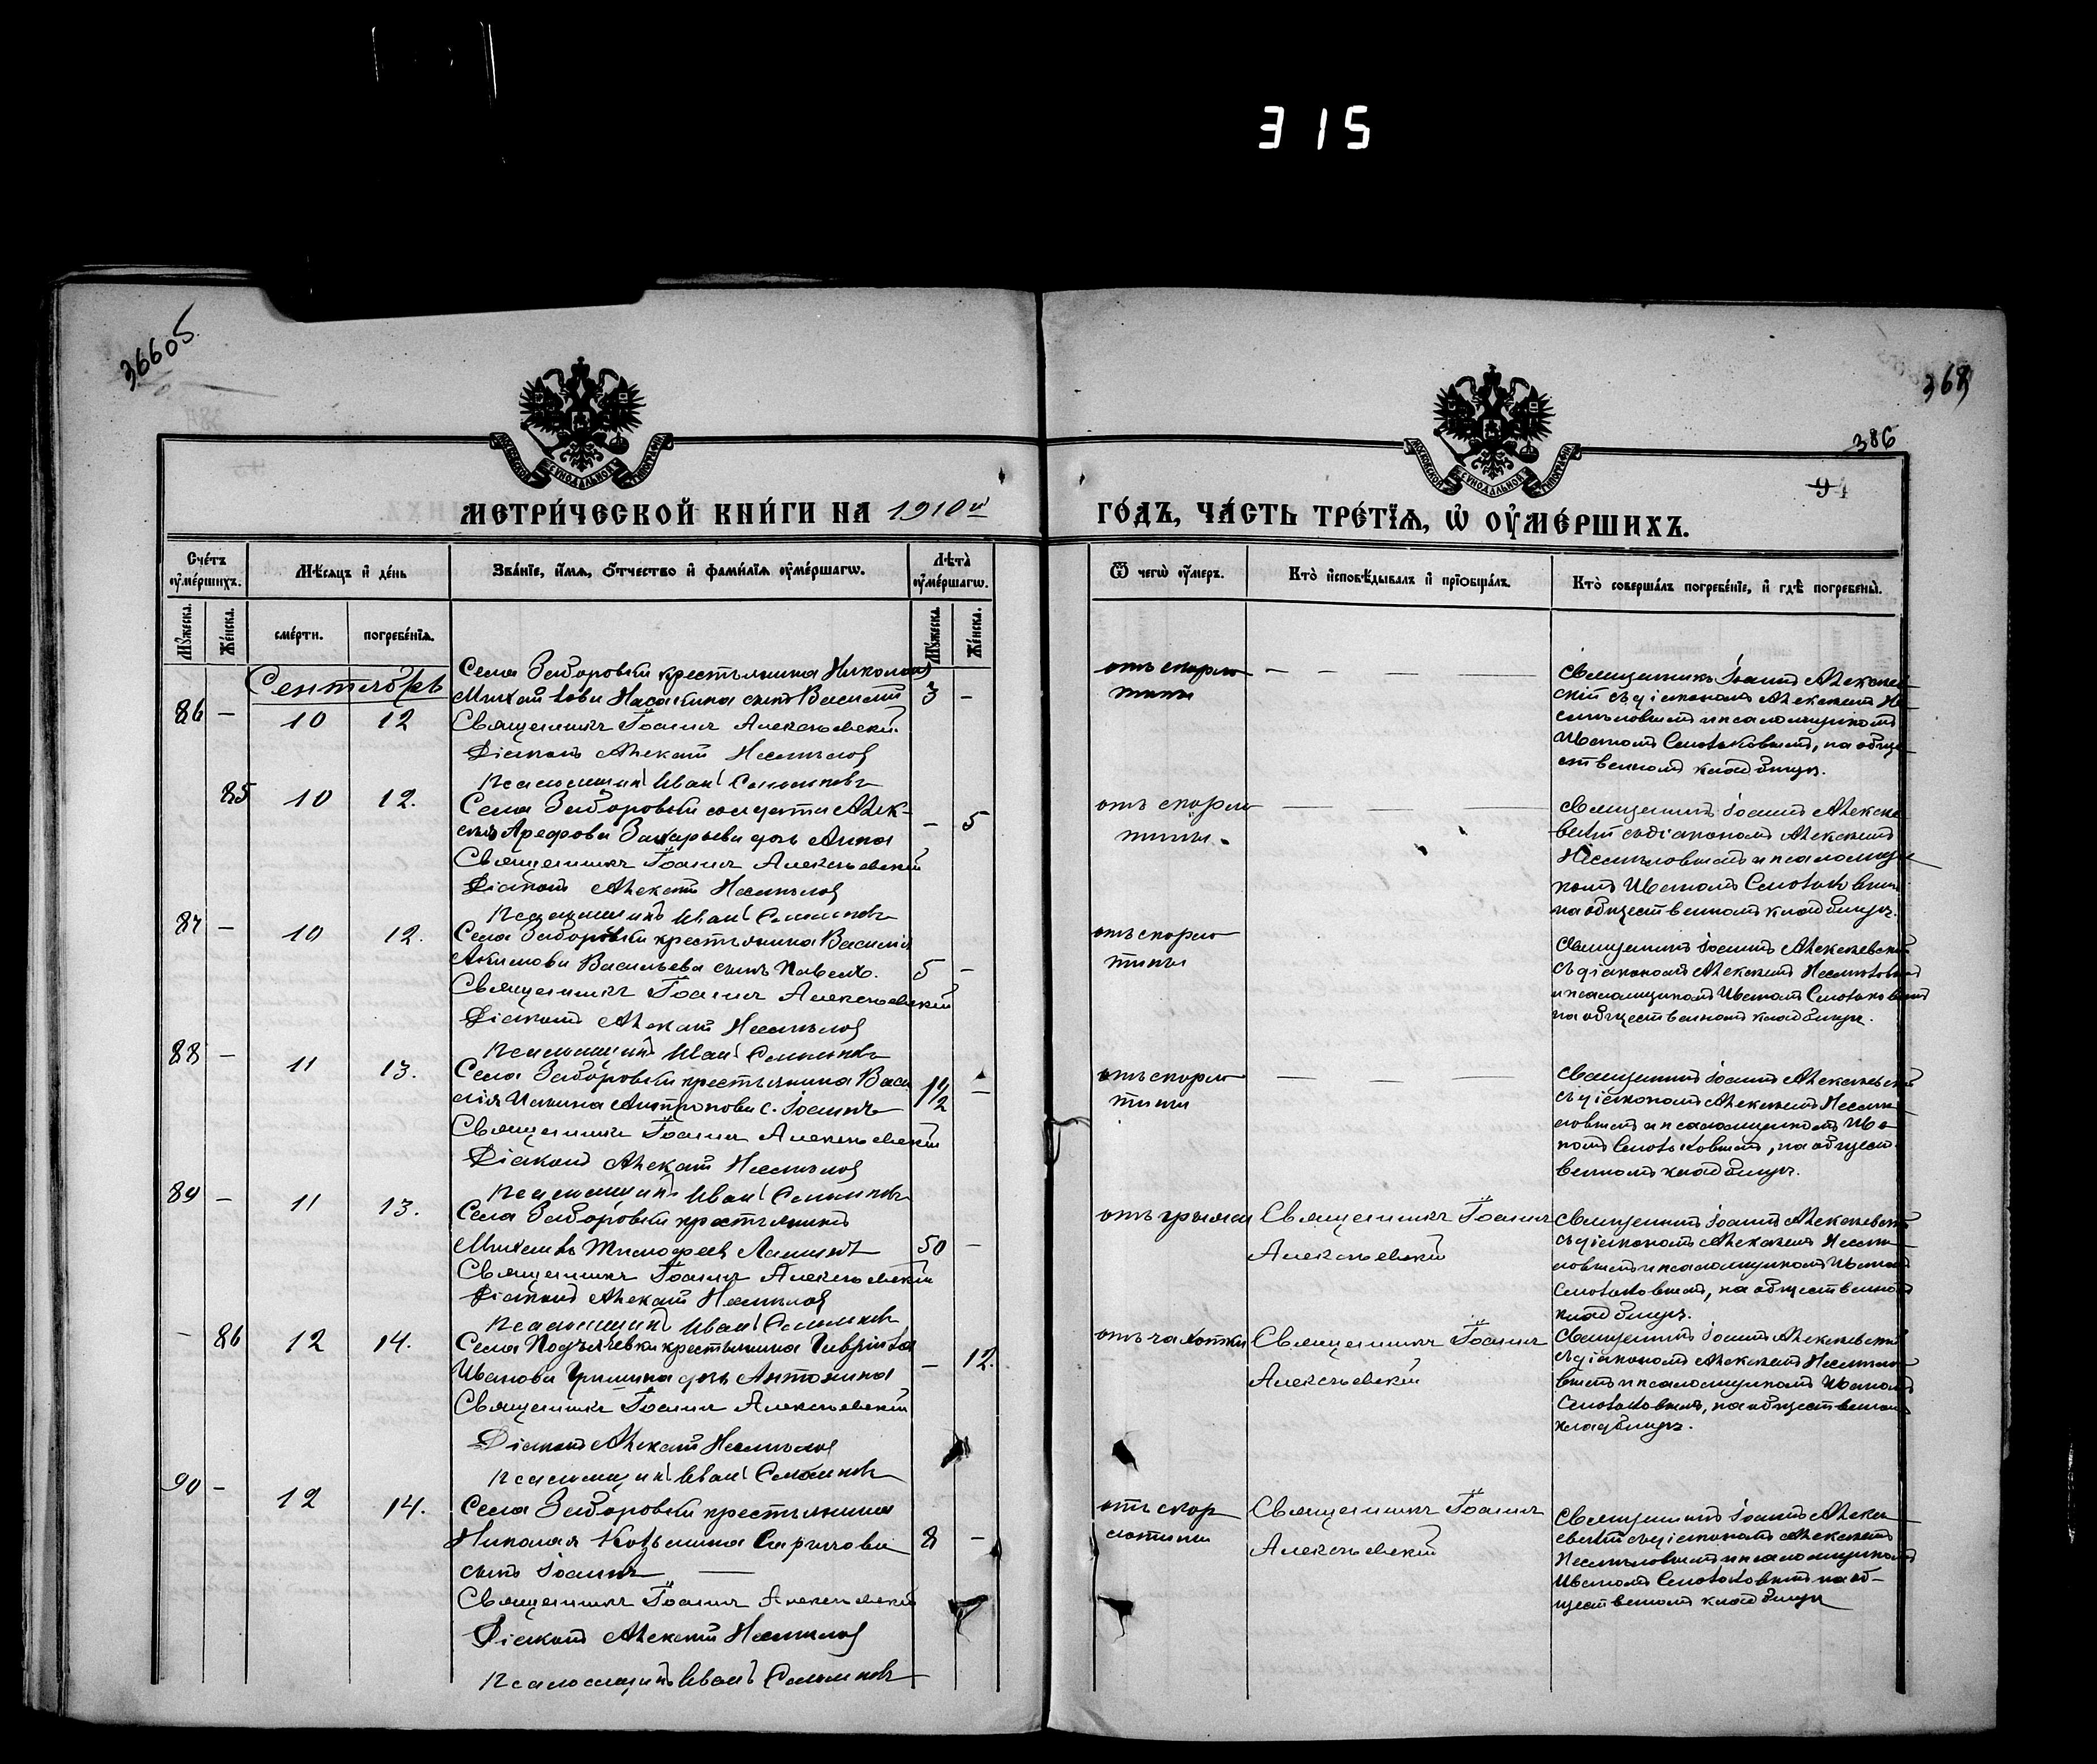 315
36605
368
386
94
МОСКОВСКОЙ СѴНОДАЛЬНОЙ ТИПОГРАФІИ
МОСКОВСКОЙ СѴНОДАЛЬНОЙ ТИПОГРАФІИ
МЕТРИ́ЧЕСКОЙ КНИ́ГИ НА 1910й
ГО́ДЪ, ЧА́СТЬ ТРЕ́ТІѦ, Ѡ҆ ОУ҆МЕ́РШИХЪ.
Сче́тъ оу҆ме́ршихъ.
Мѣ́сяцъ и҆ де́нь
Зва́нїе, и҆́мѧ, ѻ҆́тчество и҆ фами́лїѧ оу҆ме́ршагѡ.
Лѣ́та оу҆ме́ршагѡ.
Ѿ чегѡ̀ оу҆́меръ.
Кто̀ и҆сповѣ́дывалъ и҆ прїѡбща́лъ.
Кто̀ соверша́лъ погребе́нїе, и҆ гдѣ̀ погребены̀.
Мꙋ́жеска.
Же́нска.
сме́рти.
погребе́нїѧ.
Мꙋ́жеска.
Же́нска.
Сентябрь
86 - 10 12
Села Заборовки крестьянина Николая
Михайлова сынъ Василій 3 -
Священникъ Іоаннъ Алексѣевскій
Діаконъ Алексѣй Несмѣловъ
Псаломщикъ Иванъ
отъ скарла
тины
— — —
Священникъ Іоаннъ Алексѣев
скій съ діакономъ Алексѣемъ Не
смѣловымъ и псаломщикомъ
Иваномъ, на обще
ственномъ кладбищѣ.
85 10 12.
Села Заборовки солдата Алек-
сѣя Арефова Захарьева дочь Анна - 5
Священникъ Іоаннъ Алексѣевскій
Діаконъ Алексѣй Несмѣловъ
Псаломщикъ Иванъ
отъ скарла
тины.
— — —
Священникъ Іоаннъ Алексѣе
вскій съ діакономъ Алексѣемъ
Несмѣловымъ и псаломщи
комъ Иваномъ
на общественномъ кладбищѣ.
87 - 10 12.
Села Заборовки крестьянина Василія
Акимова Васильева сынъ Павелъ. 5 -
Священникъ Іоаннъ Алексѣевскій
Діаконъ Алексѣй Несмѣловъ
Псаломщикъ Иванъ
отъ скарла
тины
Священникъ Іоаннъ Алексѣевскій
съ діакономъ Алексѣемъ Несмѣловымъ
и псаломщикомъ Иваномъ
на общественномъ кладбищѣ.
88 - 11 13.
Села Заборовки крестьянина Васи
лія Антропова с. Іоаннъ 1 1/2 -
Священникъ Іоаннъ Алексѣевскій
Діаконъ Алексѣй Несмѣловъ
Псаломщикъ Иванъ
отъ скарла
тины
— — —
Священникъ Іоаннъ Алексѣевскій
съ діакономъ Алексѣемъ Несмѣ
ловымъ и псаломщикомъ Ива
номъ, на общест
венномъ кладбищѣ.
89 - 11 13.
Села Заборовки крестьянинъ
Михаилъ Тимофеевъ 50 -
Священникъ Іоаннъ Алексѣевскій
Діаконъ Алексѣй Несмѣловъ
Псаломщикъ Иванъ
отъ грыжи
Священникъ Іоаннъ
Алексѣевскій
Священникъ Іоаннъ Алексѣевскій
съ діакономъ Алексѣемъ Несмѣ
ловымъ и псаломщикомъ Иваномъ
на общественномъ
кладбищѣ.
- 86 12 14.
Села Подъячевки крестьянина Гавріила
Иванова Гришина дочь Антонина - 12.
Священникъ Іоаннъ Алексѣевскій
Діаконъ Алексѣй Несмѣловъ
Псаломщикъ Иванъ
отъ чахотки
Священникъ Іоаннъ
Алексѣевскій
Священникъ Іоаннъ Алексѣевскій
съ діакономъ Алексѣемъ Несмѣло
вымъ и псаломщикомъ Иваномъ
на общественномъ
кладбищѣ.
90 - 12 14.
Села Заборовки крестьянина
Николая Козьмина 8 -
сынъ Іоаннъ —
Священникъ Іоаннъ Алексѣевскій
Діаконъ Алексѣй Несмѣловъ
Псаломщикъ Иванъ
отъ скар
латины
Священникъ Іоаннъ
Алексѣевскій
Священникъ Іоаннъ Алексѣ
евскій съ діакономъ Алексѣемъ
Несмѣловымъ и псаломщикомъ
Иваномъ на об-
щественномъ кладбищѣ